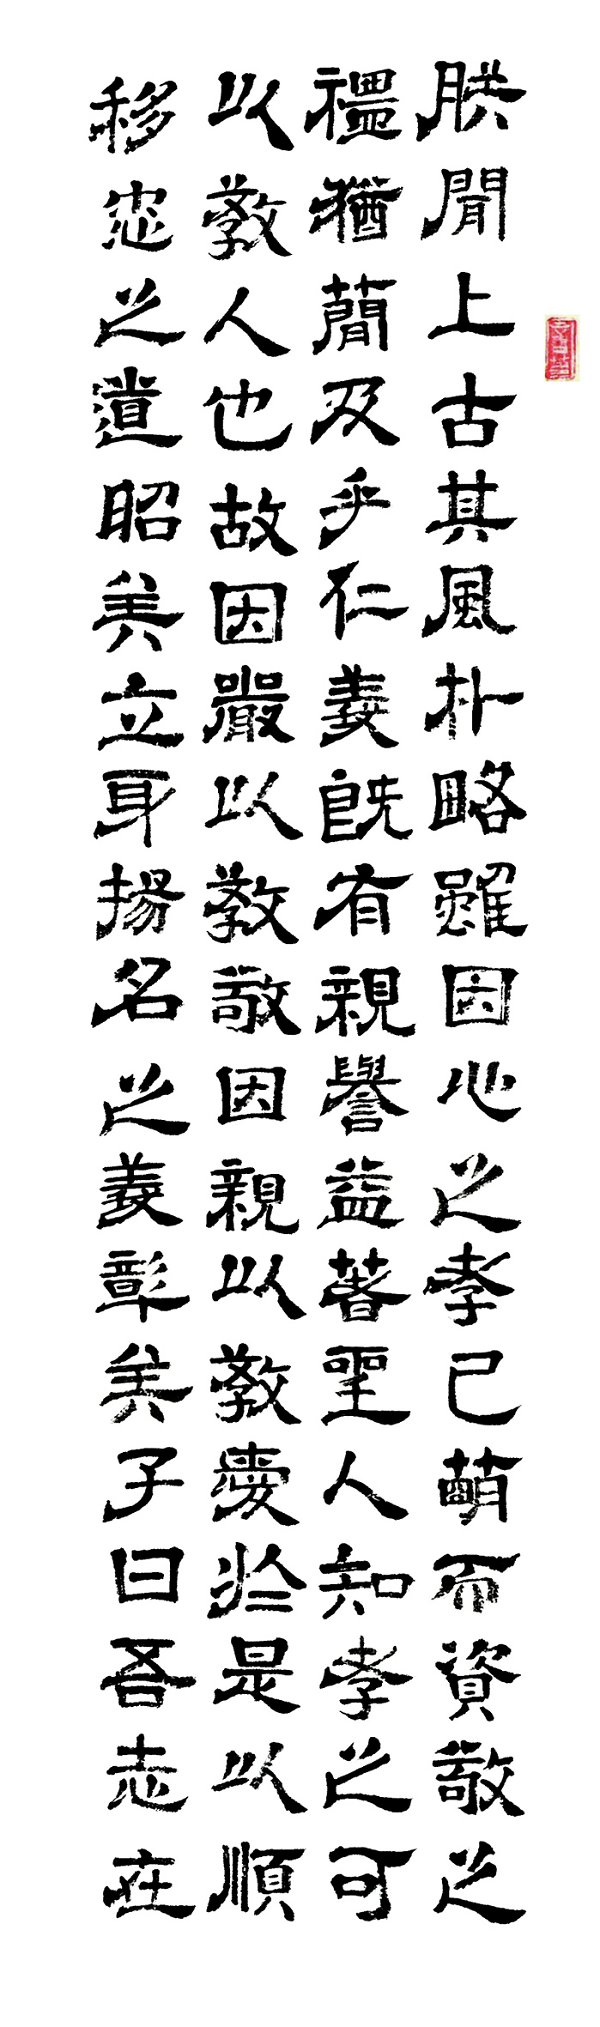 朕聞上古其風朴略雖因心之孝已萌而資敬之
禮猶簡及乎仁義既有親譽益著聖人知孝之可
以教人也故因嚴以教敬因親以教愛於是以順
移忠之道昭矣立身揚名之義彰矣子曰吾志在